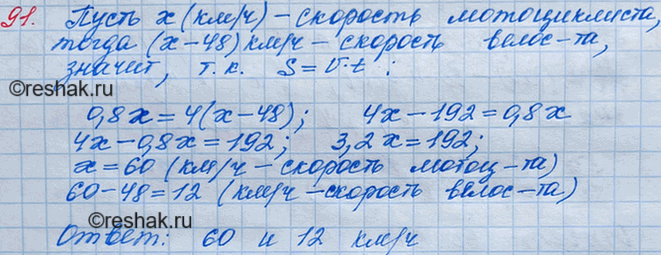 91. Пусть x (км/ч) – скорость мотоциклиста,
тогда (x-48) км/ч – скорость велос-та,
значит, т.к. S=V·t :
0,8x=4(x-48); 4x-192=0,8x
4x-0,8x=192; 3,2x=192;
x=60 (км/ч – скорость мотоц-та)
60-48=12 (км/ч – скорость велос-та)
©reshak.ru
Ответ: 60 и 12 км/ч